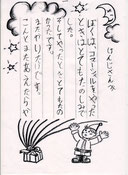 けんじさんへ
ぼくは、コマーシャルをやった
ときはとてもたのしみで
した。
そしてやったときとてもたの
かったです。
またやりたいです。
こんどまたあえたらや